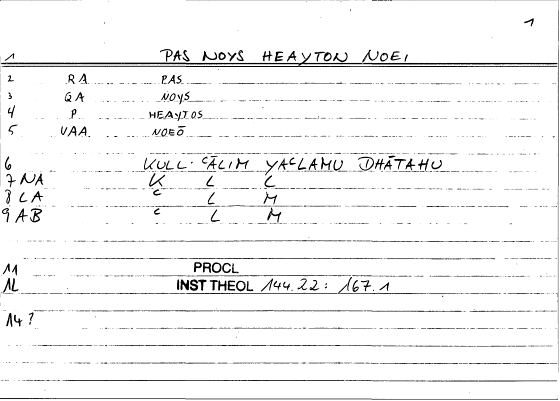 1
1 PAS NOYS HEAYTON NOEI
2 RA PAS
3 QA NOYS
4 P HEAYTOS
5 VAA NOEŌ
6 KULL· ᶜĀLIM YAᶜLAMU DHĀTAHU
7 NA K L L
8 LA ᶜ L M
9 AB ᶜ L M
11 PROCL
12 INST THEOL 144.22: 167.1
14 ?